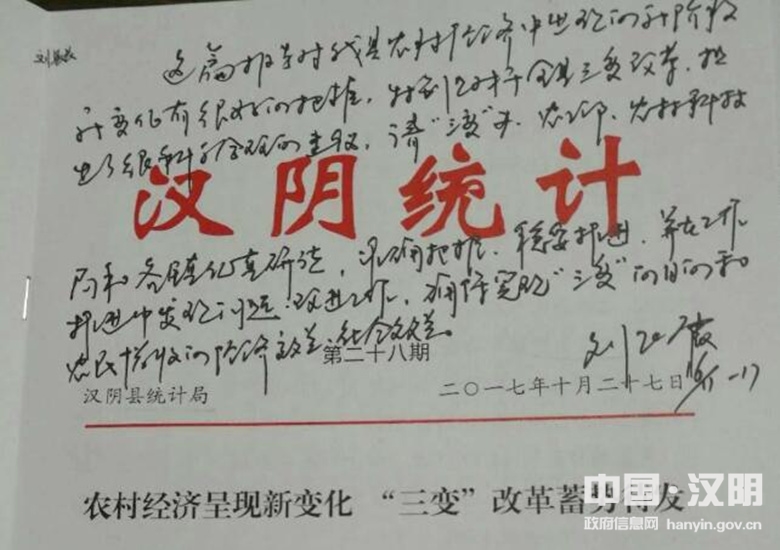 这篇报告对我县农村经济中出现的新阶段
新变化有很好的把握，特别是对全县三变改革，提
出了很科学合理的建议，请“三变”办、农工部、农村科技
局和各镇认真研读，准确把握，稳妥推进，并在工作
推进中发现问题，改进工作，确保实现“三变”的目的和
农民增收的经济效益、社会效益。
汉阴统计
第二十八期
汉阴县统计局
二〇一七年十月二十七日
农村经济呈现新变化 “三变”改革蓄势待发
中国·汉阴
政府信息网 hanyin.gov.cn